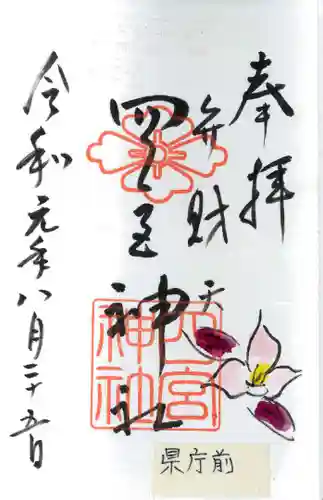 奉拝
弁財天
四宮神社
令和元年八月二十五日
四宮
神社
県庁前